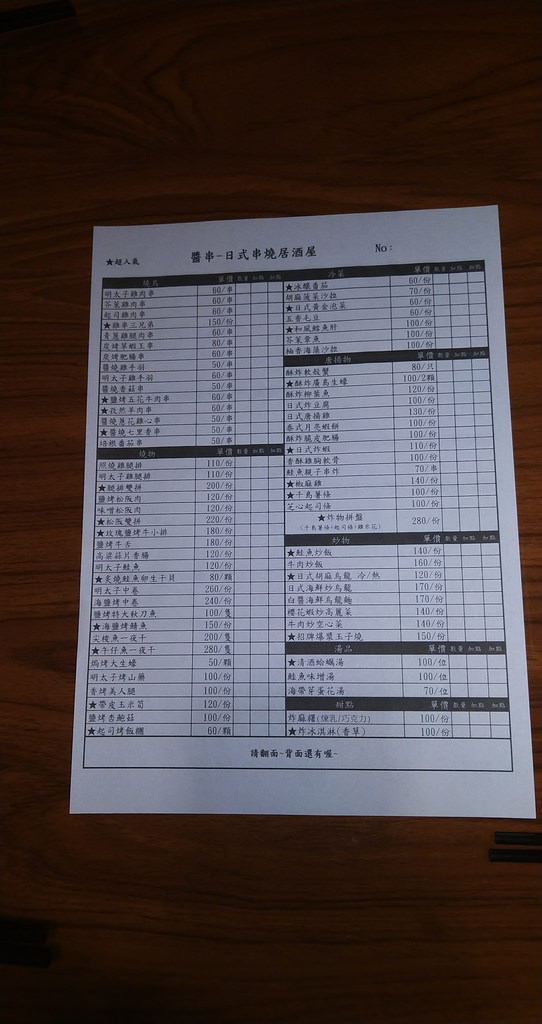 ★超人氣
醬串-日式串燒居酒屋
No:
燒鳥 單價 數量 加點 加點
明太子雞肉串 60/串
芥茉雞肉串 60/串
起司雞肉串 60/串
★雞串三兄弟 150/份
青蔥雞腿肉串 60/串
炭烤草蝦王串 80/串
炭烤肥腸串 60/串
醬燒雞手羽 50/串
明太子雞手羽 60/串
醬燒香菇串 50/串
★鹽烤五花牛肉串 60/串
★孜然羊肉串 60/串
醬燒蔥花雞心串 50/串
★醬燒七里香串 50/串
培根番茄串 50/串
燒物 單價 數量 加點 加點
照燒雞腿排 110/份
明太子雞腿排 110/份
★腿排雙拼 200/份
鹽烤松阪肉 120/份
味噌松阪肉 120/份
★松阪雙拼 220/份
★玫瑰鹽烤牛小排 180/份
鹽烤牛舌 180/份
高粱蒜片香腸 120/份
明太子鮭魚 120/份
★炙燒鮭魚卵生干貝 80/顆
明太子中卷 260/份
海鹽烤中卷 240/份
鹽烤特大秋刀魚 100/隻
★海鹽烤鯖魚 150/份
尖梭魚一夜干 200/隻
★午仔魚一夜干 280/隻
焗烤大生蠔 50/顆
明太子烤山藥 100/份
香烤美人腿 100/份
★帶皮玉米筍 120/份
鹽烤杏鮑菇 100/份
★起司烤飯糰 60/顆
冷菜 單價 數量 加點 加點
★冰釀番茄 60/份
胡麻菠菜沙拉 70/份
★日式黃金泡菜 60/份
五香毛豆 60/份
★和風鱈魚肝 100/份
芥茉章魚 100/份
柚香海藻沙拉 100/份
唐揚物 單價 數量 加點 加點
酥炸軟殼蟹 80/只
★酥炸廣島生蠔 100/2顆
酥炸柳葉魚 120/份
日式炸豆腐 100/份
日式唐揚雞 130/份
泰式月亮蝦餅 100/份
酥炸脆皮肥腸 100/份
★日式炸蝦 110/份
香酥雞胸軟骨 100/份
鮭魚親子串炸 70/串
★椒麻雞 140/份
★千島薯條 100/份
芝心起司條 100/份
★炸物拼盤 280/份
(千島薯條+起司條+雞米花)
炒物 單價 數量 加點 加點
★鮭魚炒飯 140/份
牛肉炒飯 160/份
★日式胡麻烏龍 冷/熱 120/份
日式海鮮炒烏龍 170/份
白醬海鮮烏龍麵 170/份
櫻花蝦炒高麗菜 140/份
牛肉炒空心菜 140/份
★招牌爆漿玉子燒 150/份
湯品 單價 數量 加點 加點
★清酒蛤蠣湯 100/位
鮭魚味增湯 100/位
海帶芽蛋花湯 70/位
甜點 單價 數量 加點 加點
炸麻糬(煉乳/巧克力) 100/份
★炸冰淇淋(香草) 100/份
請翻面~背面還有喔~